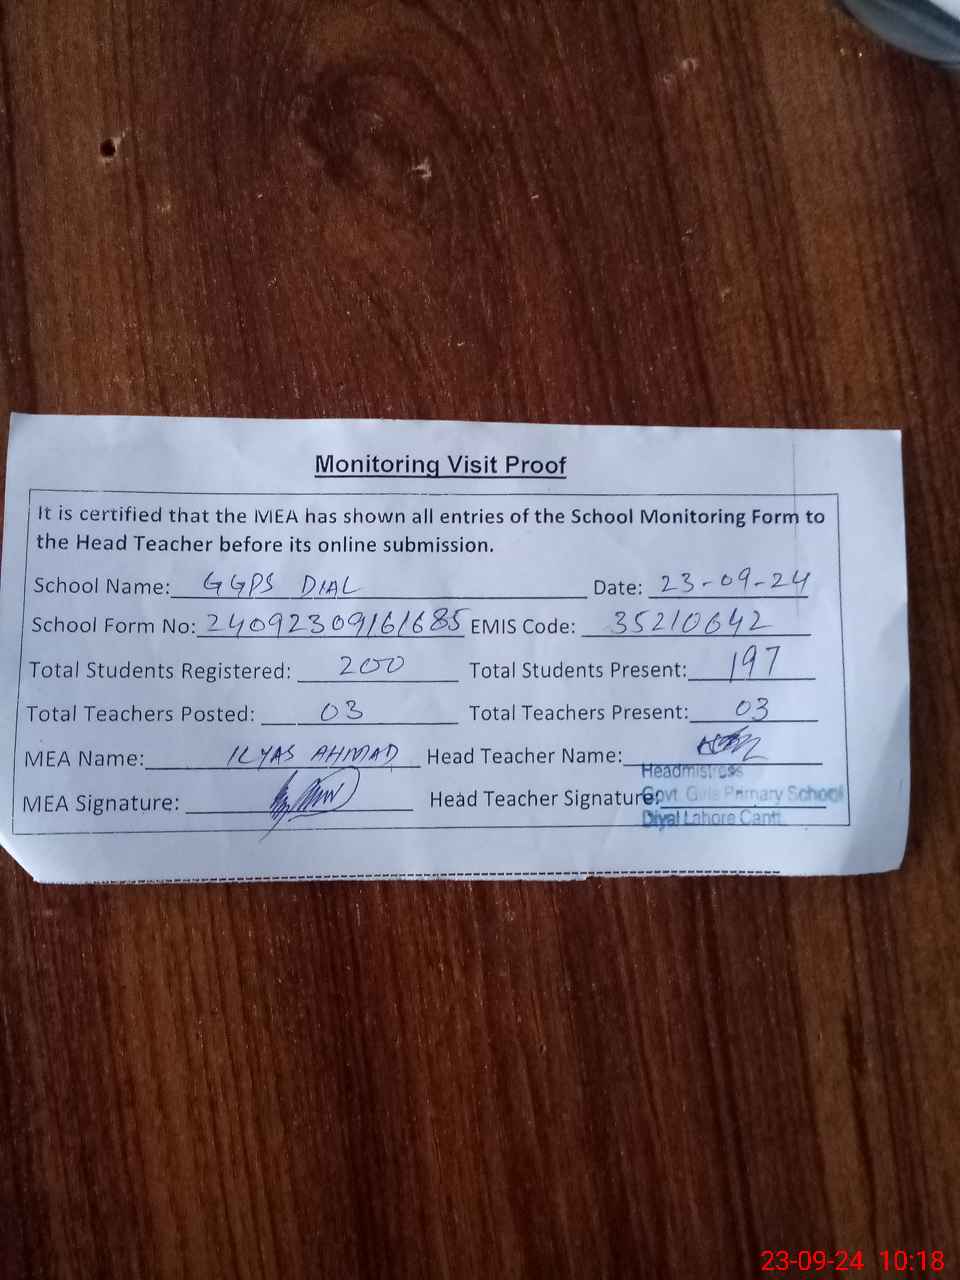 Monitoring Visit Proof
It is certified that the MEA has shown all entries of the School Monitoring Form to
the Head Teacher before its online submission.
School Name: GGPS DIAL Date: 23-09-24
School Form No: 24092309161685 EMIS Code: 35210642
Total Students Registered: 200 Total Students Present: 197
Total Teachers Posted: 03 Total Teachers Present: 03
MEA Name: ILYAS AHMAD Head Teacher Name:
Headmistress
MEA Signature: Head Teacher Signature: Govt. Girls Primary School
Diyal Lahore Cantt.
23-09-24 10:18